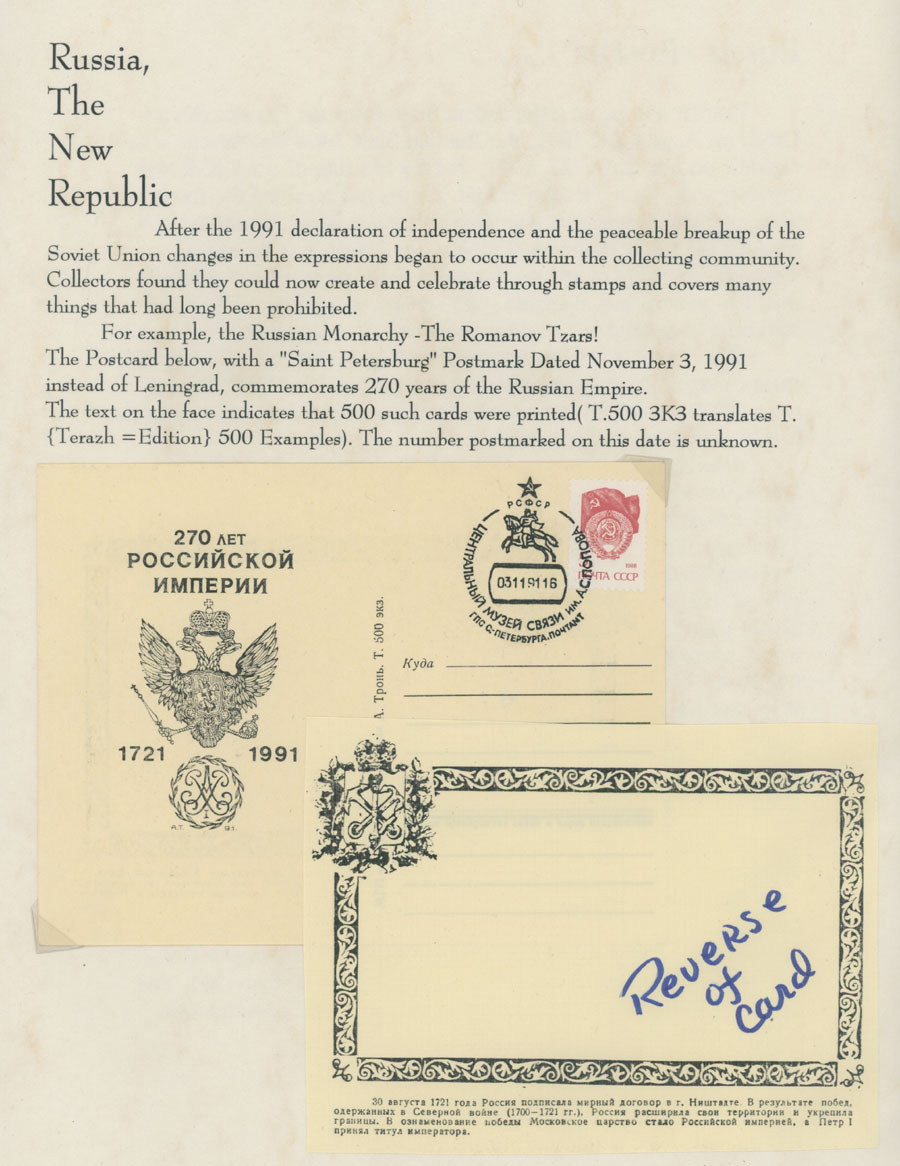 Russia,
The
New
Republic
After the 1991 declaration of independence and the peaceable breakup of the
Soviet Union changes in the expressions began to occur within the collecting community.
Collectors found they could now create and celebrate through stamps and covers many
things that had long been prohibited.
For example, the Russian Monarchy -The Romanov Tzars!
The Postcard below, with a "Saint Petersburg" Postmark Dated November 3, 1991
instead of Leningrad, commemorates 270 years of the Russian Empire.
The text on the face indicates that 500 such cards were printed( T.500 3K3 translates T.
{Terazh =Edition} 500 Examples). The number postmarked on this date is unknown.
270 ЛЕТ
РОССИЙСКОЙ
ИМПЕРИИ
1721 1991
А.Т. 91.
А. Тронь. Т. 500 экз.
РСФСР
ЦЕНТРАЛЬНЫЙ МУЗЕЙ СВЯЗИ ИМ. А.С.ПОПОВА
03119116
ГПС С-ПЕТЕРБУРГА.ПОЧТАМТ
1988
ПОЧТА СССР
Куда
Reverse
of
card
30 августа 1721 года Россия подписала мирный договор в г. Ништадте. В результате побед,
одержанных в Северной войне (1700—1721 гг.), Россия расширила свои территории и укрепила
границы. В ознаменование победы Московское царство стало Российской империей, а Петр I
принял титул императора.